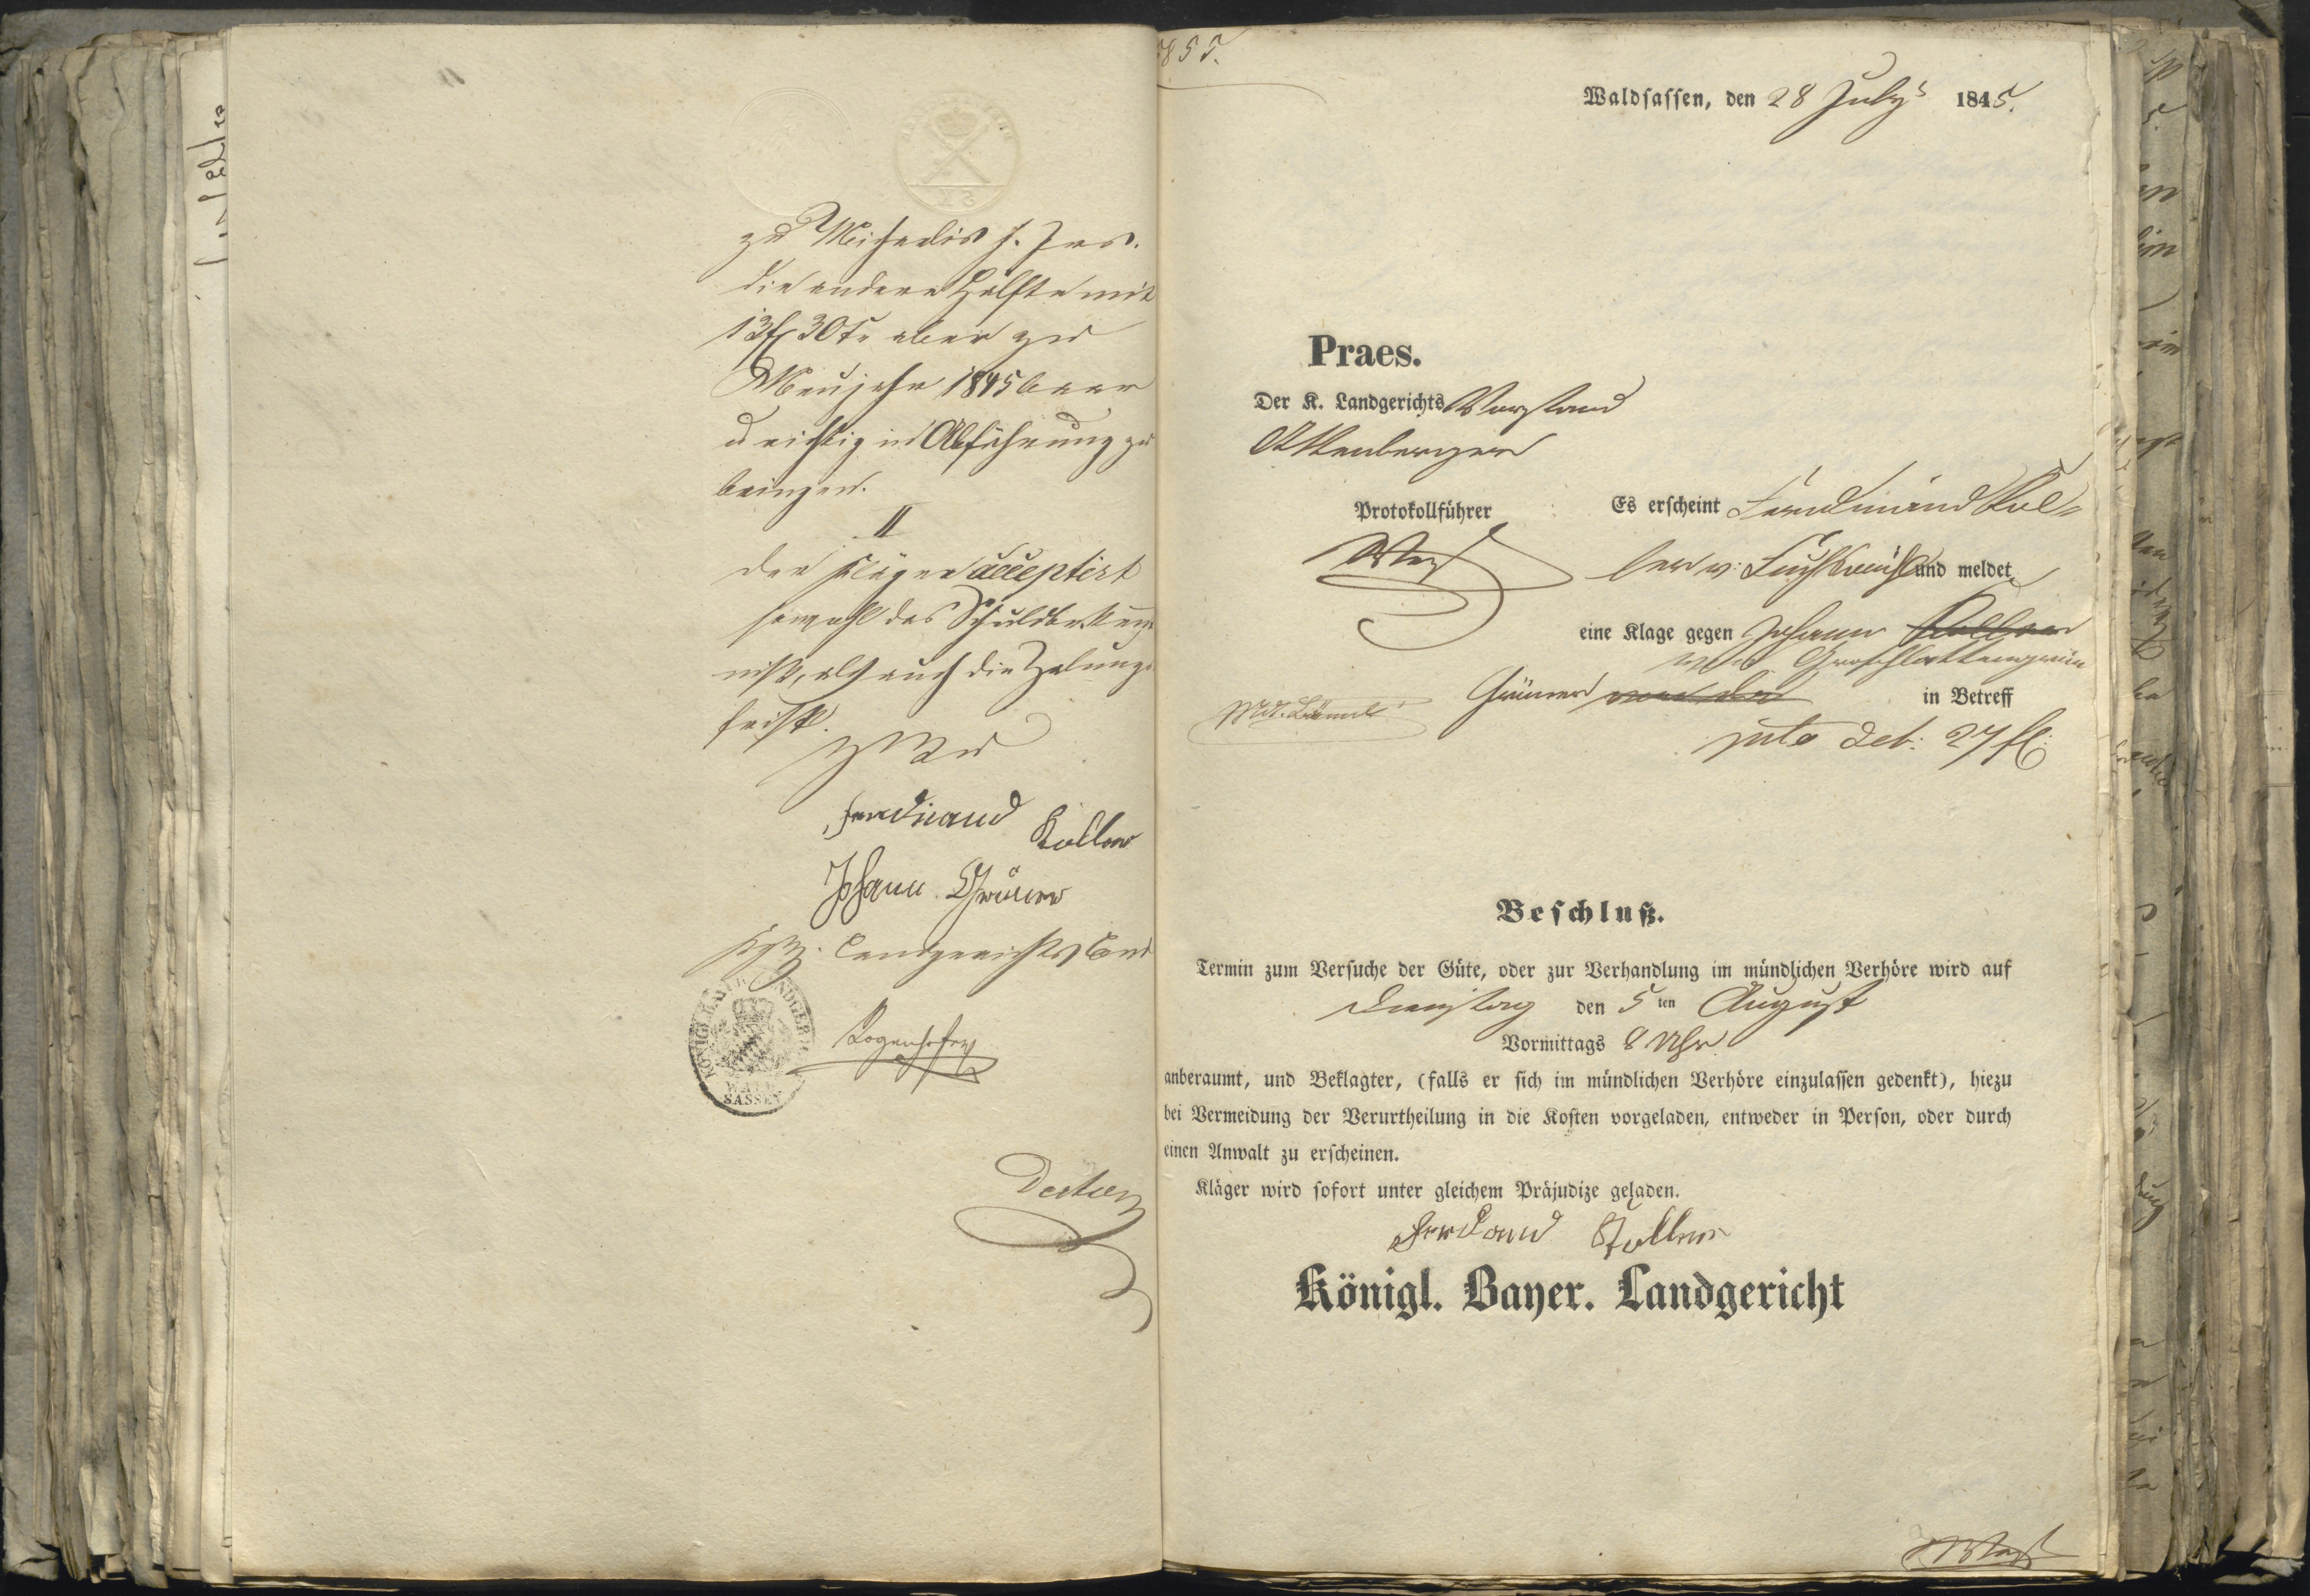 zu Michaelis h. Jrs.
die andere Hälfte mit
13 fl 30 kr aber zu
Neujahr 1845 baar
u richtig in Abführung zu
bringen.
II
Der Kläger acceptirt
sowohl das Schuldbekennt
niß, als auch die Zalungs
frist.
Ferdinand Koller
Johann Grüner
Kgl. Landgericht
KÖNIGL. BAYER. LANDGERICHT
WALD
SASSEN
Rogenhofer
Waldsassen, den 28 July 1845.
Praes.
Der K. Landgerichts Vorstand
Protokollführer
Es erscheint Ferdinand Kol-
ler v. und meldet
eine Klage gegen Johann Koller
von Großschlattengrün
Grüner
in Betreff
pcto deb: 27 fl
Beschluß.
Termin zum Versuche der Güte, oder zur Verhandlung im mündlichen Verhöre wird auf
Dienstag den 5 ten August
Vormittags 8 Uhr
anberaumt, und Beklagter, (falls er sich im mündlichen Verhöre einzulassen gedenkt), hiezu
bei Vermeidung der Verurtheilung in die Kosten vorgeladen, entweder in Person, oder durch
einen Anwalt zu erscheinen.
Kläger wird sofort unter gleichem Präjudize geladen.
Koller
Königl. Bayer. Landgericht